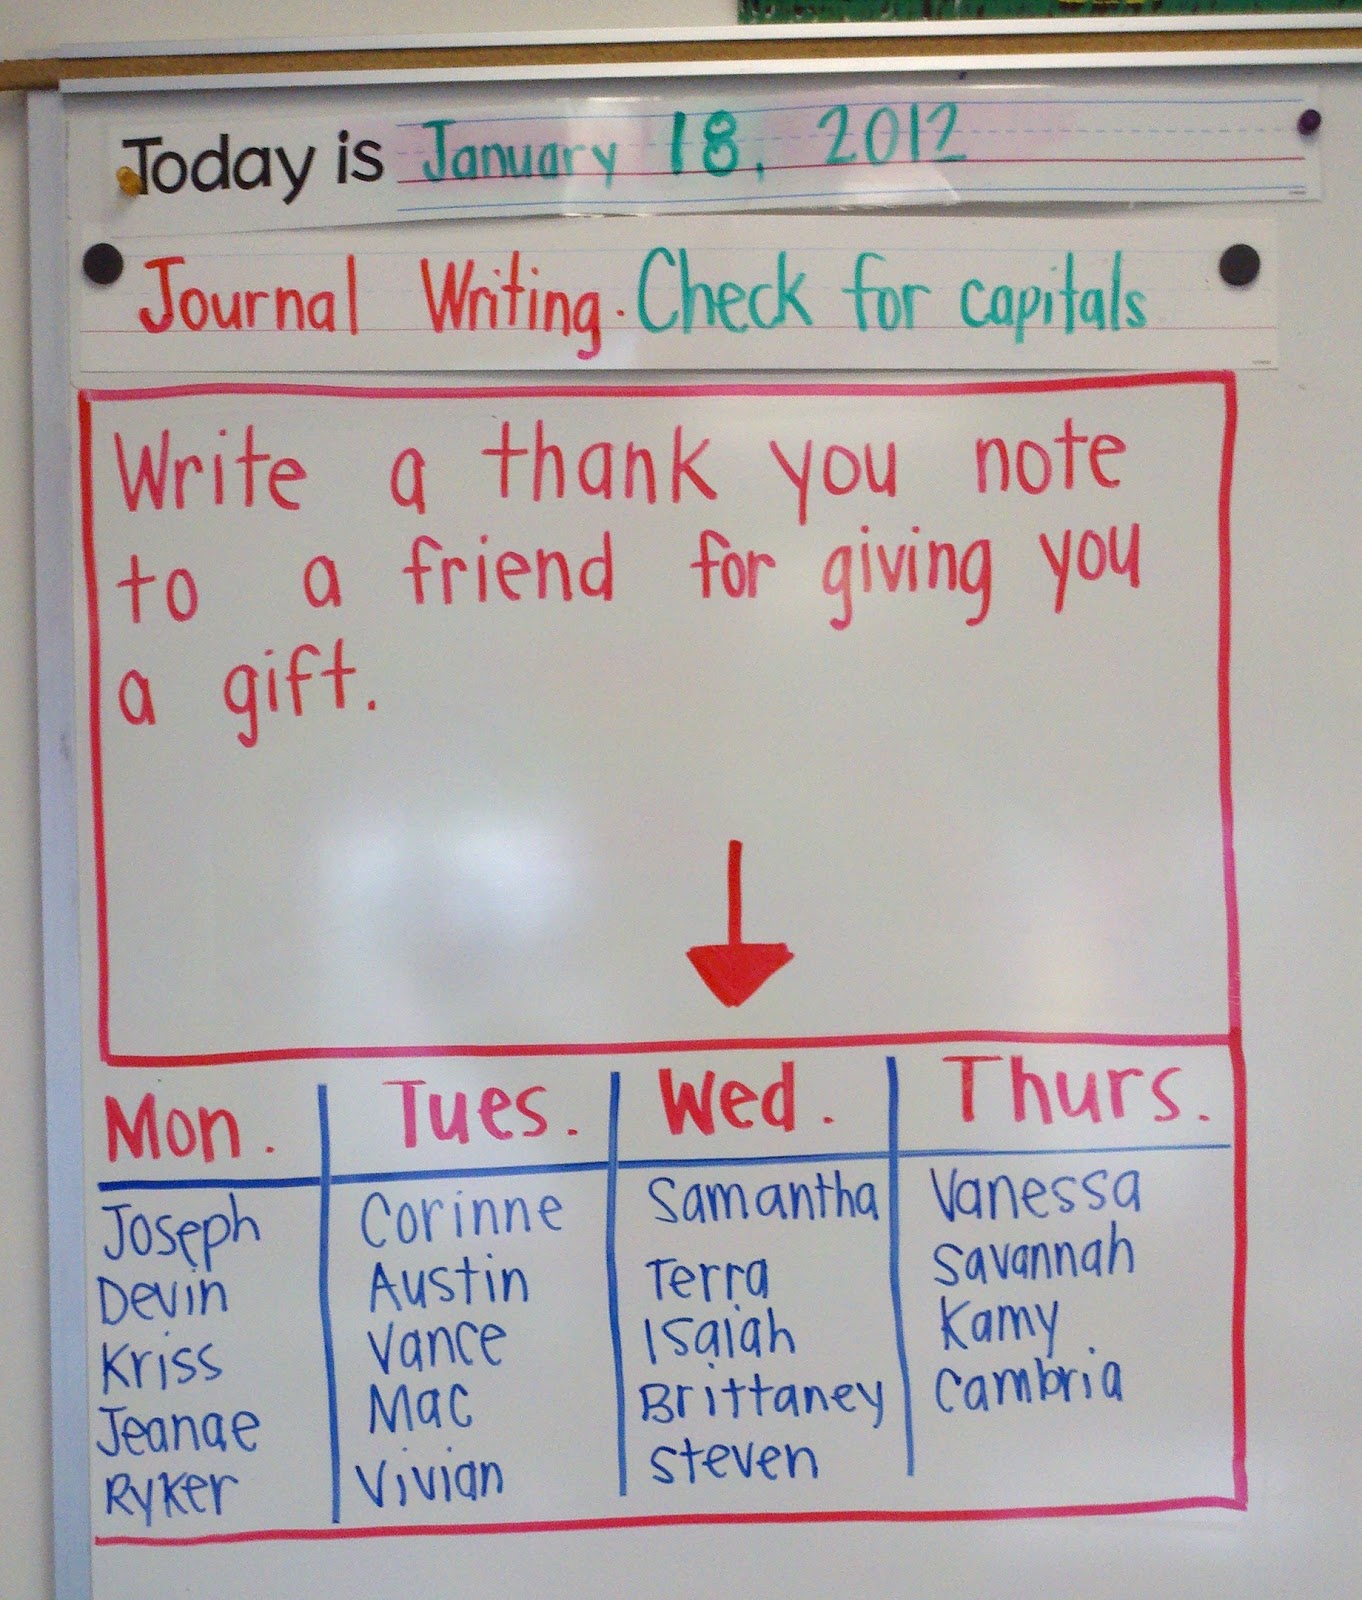 Today is January 18, 2012
Journal Writing. Check for capitals
Write a thank you note
to a friend for giving you
a gift.
Mon. Tues. Wed. Thurs.
Joseph Corinne Samantha Vanessa
Devin Austin Terra Savannah
Kriss Vance Isaiah Kamy
Jeanae Mac Brittaney Cambria
Ryker Vivian Steven